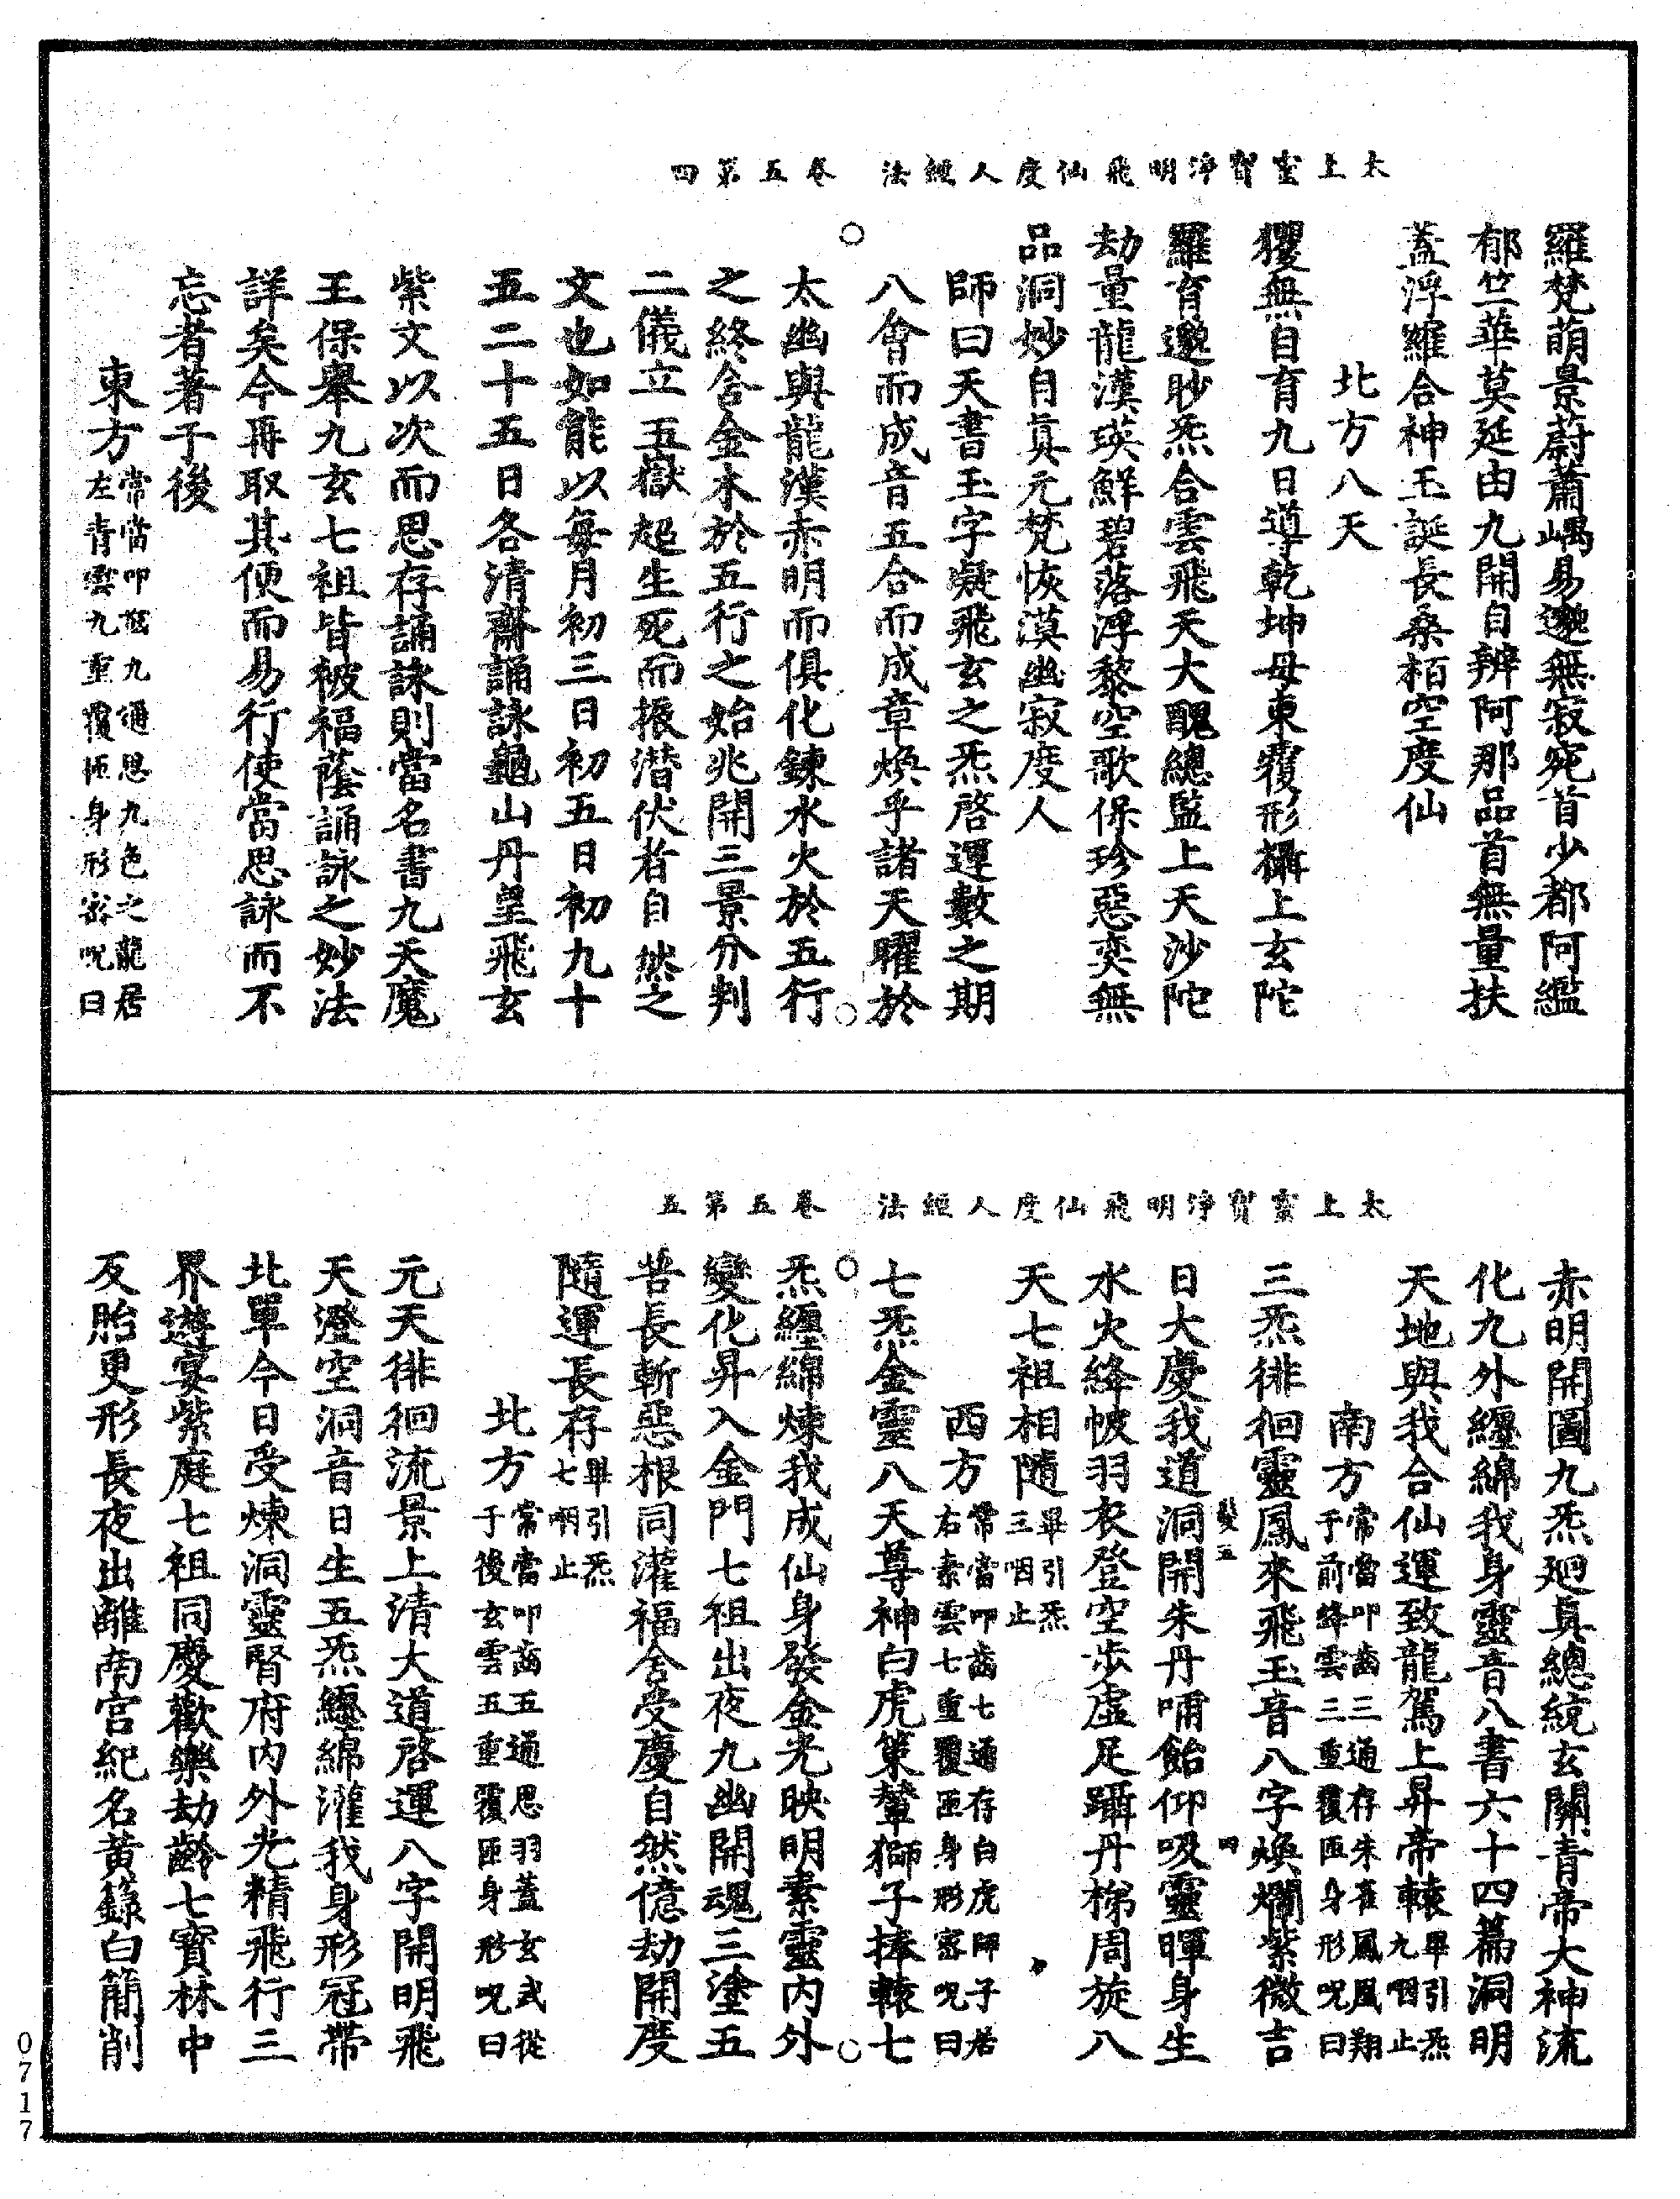 太上靈寶淨明飛仙度人經法　卷五第四
羅梵萌景蔚蕭嵎易邈無寂宛首少都阿㰐
郁竺華莫延由九開自辨阿那品首無量扶
蓋浮羅合神玉誕長桑栢空度仙
北方八天
玃無自育九日導乾坤母東覆形攝上玄陀
羅育邈眇炁合雲飛天大醜總監上天沙陀
劫量龍漢瑛鮮碧落浮黎空歌保珍惡奕無
品洞妙自真元梵恢漠幽寂度人
師曰天書玉字凝飛玄之炁啓運數之期
八會而成音五合而成章煥乎諸天曜於
太幽與龍漢赤明而俱化鍊水火於五行
之終含金木於五行之始兆開三景分判
二儀立五嶽超生死而振潛伏者自然之
文也如能以每月初三日初五日初九十
五二十五日各清齋誦詠龜山丹皇飛玄
紫文以次而思存誦詠則當名書九天魔
王保舉九玄七祖皆被福蔭誦詠之妙法
詳矣今再取其便而易行使當思詠而不
忘者著于後
東方常當叩齒九通思九色之龍居
左青雲九重覆匝身形密呪曰
太上靈寶淨明飛仙度人經法　卷五第五
赤明開圖九炁廻真總統玄關青帝大神流
化九外纏綿我身靈音八書六十四篇洞明
天地與我合仙運致龍駕上昇帝轅畢引炁
九咽止
南方常當叩齒三通存朱雀鳳凰翔
于前絳雲三重覆匝身形呪曰
三炁徘徊靈鳳來飛玉音八字煥爛紫微吉
髮五　四
日大慶我道洞開朱丹哺飴仰吸靈暉身生
水火絳帔羽衣登空步虛足躡丹梯周旋八
天七祖相隨畢引炁
三咽止
西方常當叩齒七通存白虎師子居
右素雲七重覆匝身形密呪曰
七炁金靈八天尊神白虎策輦獅子捧轅七
炁纏綿煉我成仙身發金光映明素靈內外
變化昇入金門七祖出夜九幽開魂三塗五
苦長斬惡根同灌福舍受慶自然億劫開度
隨運長存畢引炁
七咽止
北方常當叩齒五通思羽蓋玄武從
于後玄雲五重覆匝身形呪曰
元天徘徊流景上清大道啓運八字開明飛
天澄空洞音日生五炁纏綿灌我身形冠帶
北單今日受煉洞靈腎府內外光精飛行三
界遊宴紫庭七祖同慶歡樂劫齡七寶林中
反胎更形長夜出離南宮紀名黃籙白簡削
0717